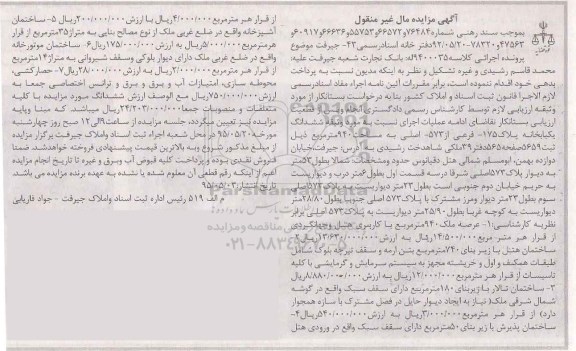 آگهی مزایده مال غیر منقول
بموجب سند رهنی شماره۷۶۴۸۴و۶۶۵۷۲و۵۵۷۵۳و۶۶۶۳۶و۶۰۹۱۷و
۴۷۵۶۳و۷۸۳۲۰-۹۲/۰۵/۲۰دفتر خانه اسنادرسمی۴۲- جیرفت موضوع
پرونده اجرائی کلاسه۹۴۰۰۰۳۵له: بانک تجارت شعبه جیرفت علیه:
محمد قاسم رشیدی و غیره تشکیل و نظر به اینکه مدیون نسبت به پرداخت
بدهی خود اقدام ننموده است، برابر مقررات آئین نامه اجراء مفاد اسنادرسمی
لازم الاجرا قانون ثبت اسناد و املاک کشور بنابه درخواست بستانکار از مورد
وثیقه ارزیابی لازم توسط کارشناس رسمی دادگستری
ارزیابی بستانکار تقاضای ادامه عملیات اجرای نسبت به مورد وثیقه ششدانگ
یکبابخانه پلاک۱۷۵- فرعی از۵۷۳- اصلی به مساحت۹۴۰مترمربع ذیل
ثبت۶۵۹صفحه۵۶۵دفتر۳۹ملکی شاهدخت رشیدی به آدرس: جیرفت خیابان
دوازده بهمن، ابومسلم شمالی هتل دقیانوس حدود ومشخصات شمالا بطول۵۳متر
به دیوار پلاک۵۷۳اصلی شرقا درسه قسمت اول بطول۶متر درب و دیواریست
به حریم خیابان دوم جنوبی است بطول۲۳متر دیواریست به پلاک۵۷۳اصلی
سوم بطول۲۳متر دیوار ومرز مشترک با پلاک۵۷۳ اصلی جنوبا بطول۲۸/۸۰متر
دیواریست به کوچه غربا بطول۲۵/۹۰متر دیواریست به پلاک۵۷۳ اصلی برابر
نظریه کارشناسی:۱- عرصه ملک۹۴۰مترمربع با کاربری هتل وجهانگردی
از قرار هر متر مربع۱۴/۵۰۰/۰۰۰ریال به ارزش۱۳/۶۳۰/۰۰۰/۰۰۰ریال۲-
ساختمان هتل با زیر بنای ۷۴۰مترمربع بتن ارمه و سقف تیرچه بلوک شامل
طبقات همکف و اول و خرپشته مجهز به سیستم سرمایش و گرمایش با کلیه
تاسیسات از قرار هر مترمربع۱۲/۰۰۰/۰۰۰ریال به ارزش۸/۸۸۰/۰۰۰/۰۰۰ریال
۳- ساختمان تالار با زیربنای ۱۸۰مترمربع دارای سقف سبک واقع در گوشه
شمال شرقی ملک( نیاز به ایجاد دیوار حایل در فصل مشترک با سازه همجوار
دارد) از قرار هر مترمربع۳/۰۰۰/۰۰۰ریال به ارزش۵۴۰/۰۰۰/۰۰۰ریال۴-
ساختمان پذیرش با زیر بنای ۵۰مترمربع دارای سقف سبک واقع در ورودی هتل
از قرار هر مترمربع۴/۰۰۰/۰۰۰ریال با ارزش۲۰۰/۰۰۰/۰۰۰ریال ۵- ساختمان
آشپزخانه واقع در ضلع غربی ملک از نوع مصالح بنایی به متراژ۳۵مترمربع از قرار
هرمترمربع۵/۰۰۰/۰۰۰ریال به ارزش۱۷۵/۰۰۰/۰۰۰ریال۶- ساختمان موتورخانه
واقع در ضلع غربی ملک دارای دیوار بلوکی وسقف شیروانی به متراژ۱۴مترمربع
از قرار هر مترمربع۲/۰۰۰/۰۰۰ریال به ارزش۲۸/۰۰۰/۰۰۰ریال۷- حصارکشی،
محوطه سازی، امتیازات آب و برق و برق و ترانس اختصاصی جمعا به
ارزش۷۵۰/۰۰۰/۰۰۰ریال مع الوصف ارزش ششدانگ مورد مزایده با کلیه
متعلقات و منصوبات جمعا۲۴/۲۰۳/۰۰۰/۰۰۰ریال میباشد. که مبنا وپایه
مزایده نیز تعیین میگردد، جلسه مزایده از ساعت۹الی۱۲ صبح روز چهارشنبه
مورخه۹۵/۰۵/۲۰ در محل شعبه اجراء ثبت اسناد واملاک جیرفت برگزار مزایده
از مبلغ مذکور شروع وبه بالاترین قیمت پیشنهادی فروخته خواهدشد. ضمنا
فروش نقدی بوده و پرداخت کلیه قبوض آب وبرق و غیره تا تاریخ انجام مزایده
اعم از اینکه رقم قطعی آن معلوم شده یا نشده به عهده برنده مزایده می باشد.
تاریخ انتشار۹۵/۰۵/۰۳
م الف ۵۱۹ رئیس اداره ثبت اسناد واملاک جیرفت - جواد فاریابی
۰۲۱-۸۸۳۴۹۶۷۰-۵